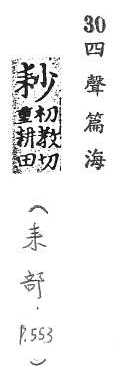 30四聲篇海
耖初教切
重耕田
(耒部·P.553)